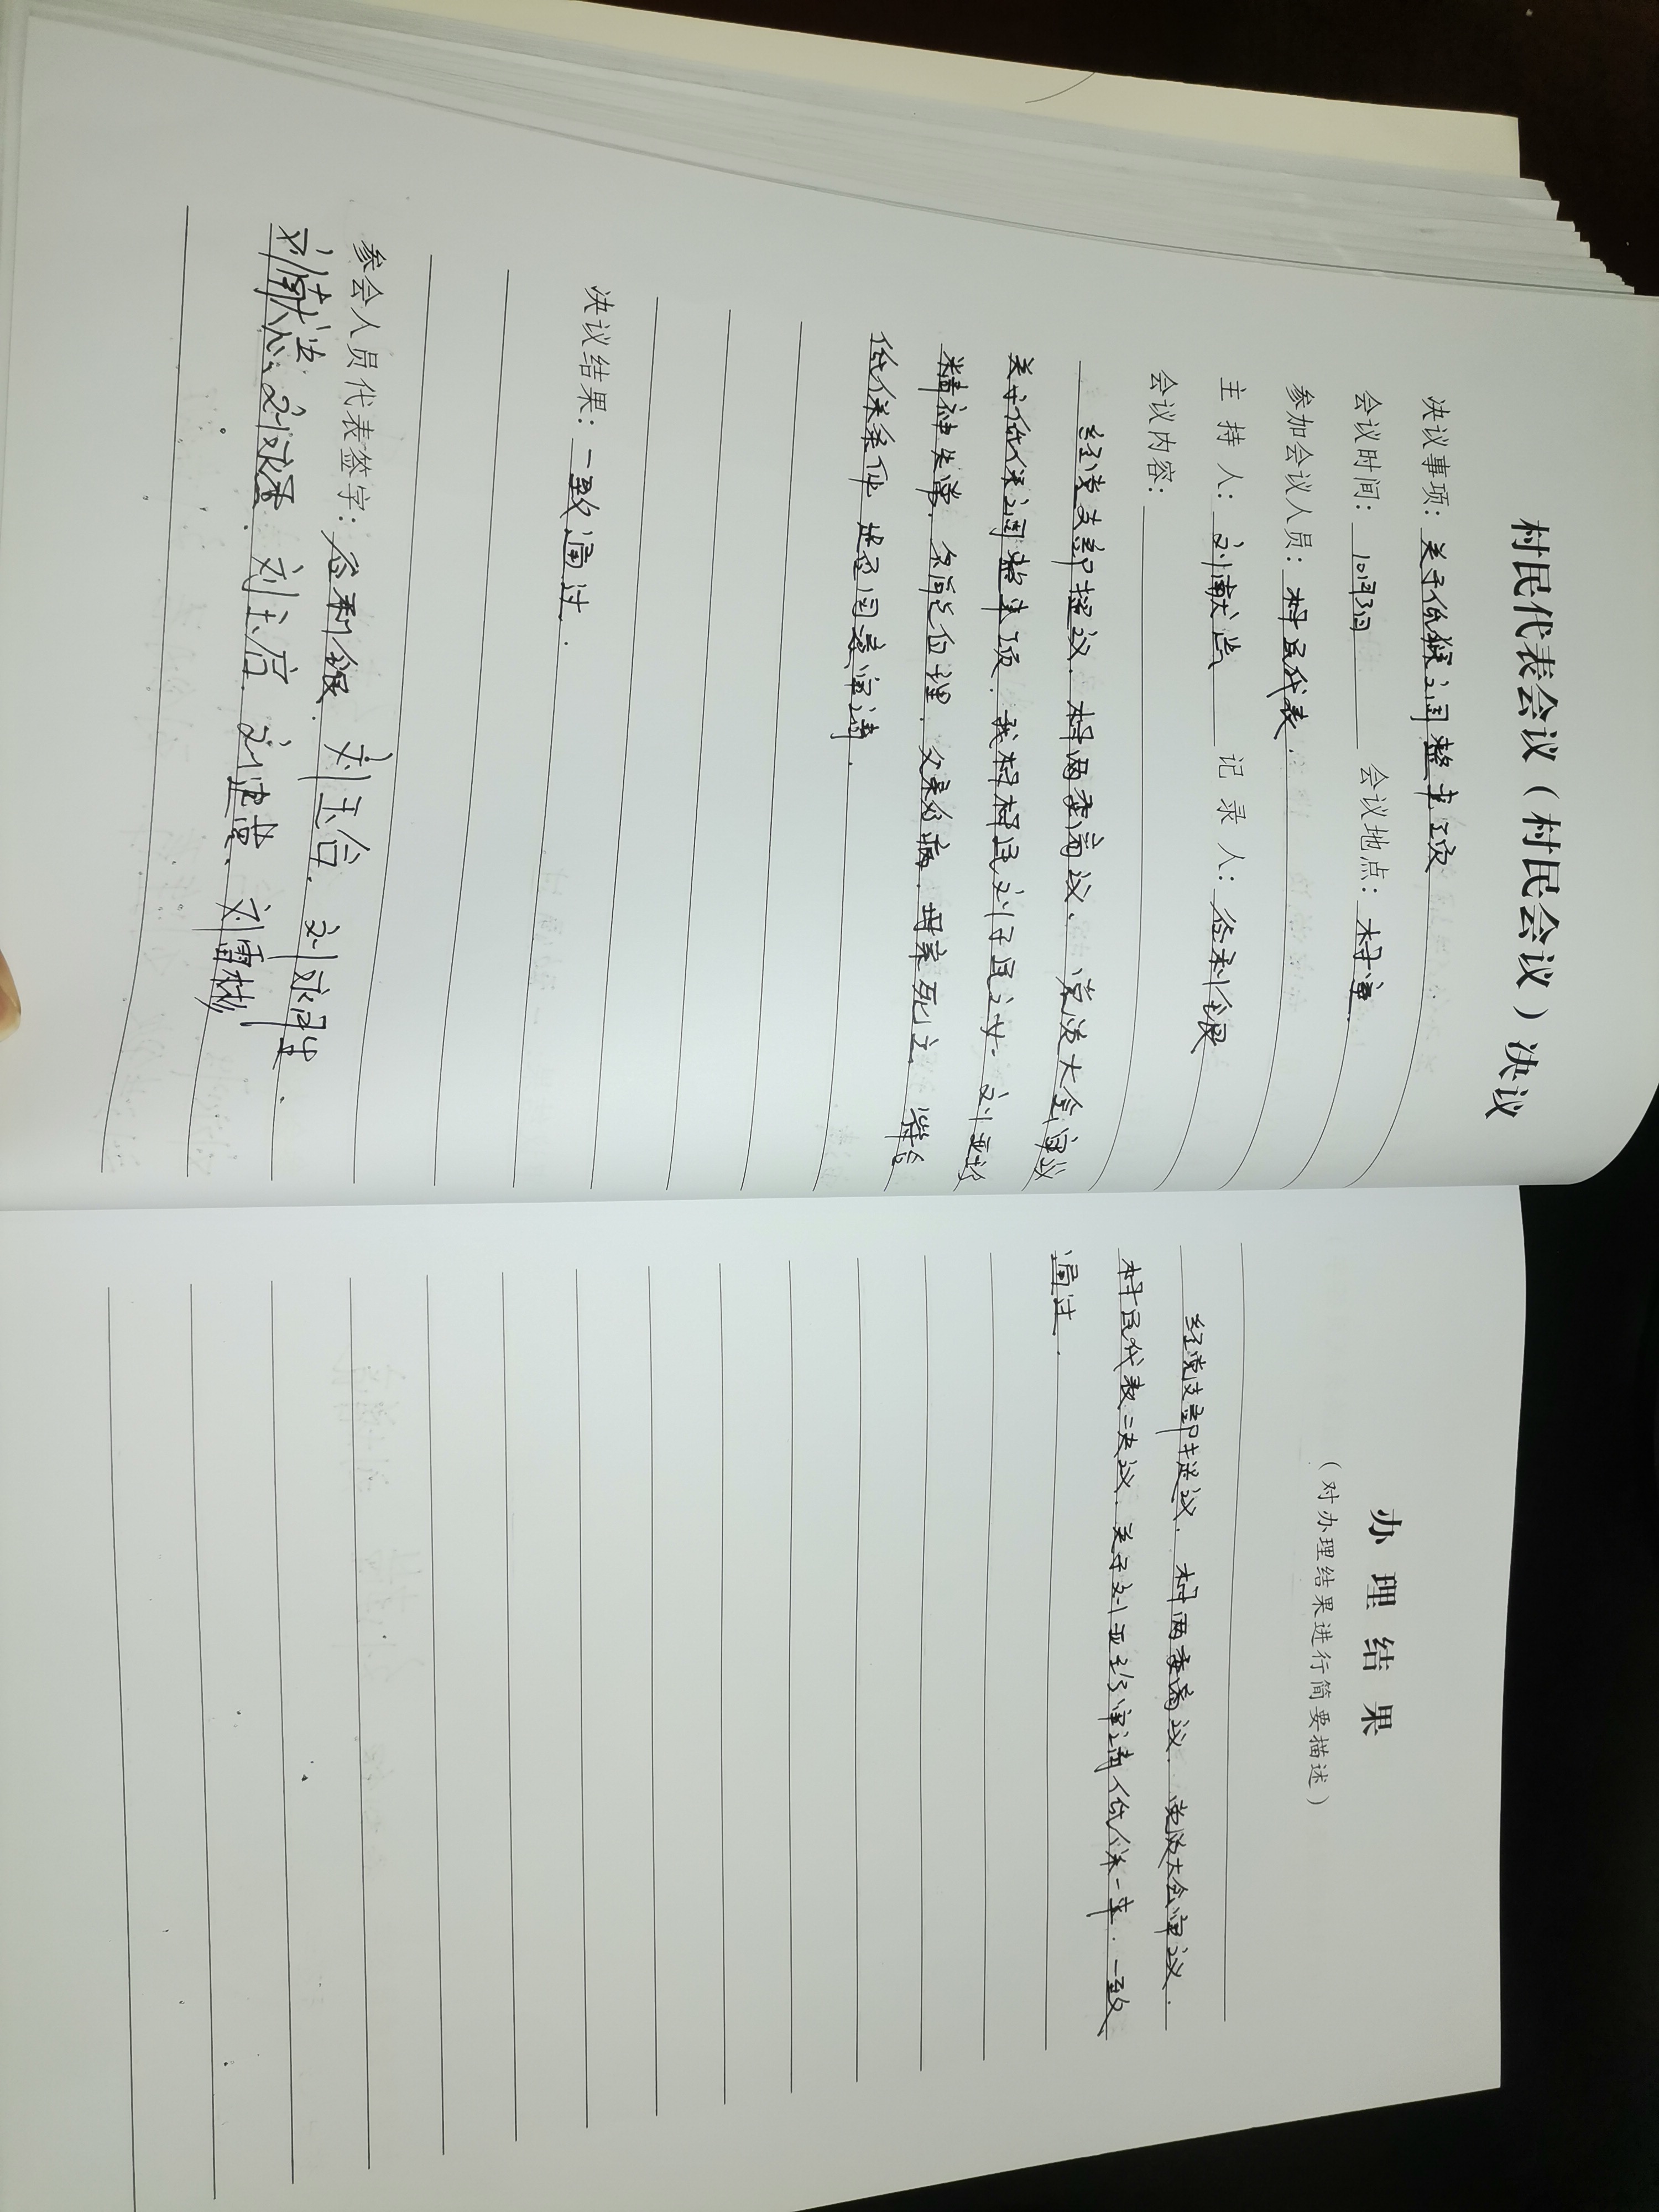 村民代表会议（村民会议）决议
决议事项：关于低保调整事项
会议时间：10月3日 会议地点：村室.
参加会议人员：村民代表.
主持人：刘献忠 记录人：谷利银
会议内容：
经党支部提议、村两委商议、党员大会审议
关于低保调整事项、我村村民刘子民之女 刘亚珍
精神失常、不能自理、父亲多病、母亲死亡、符合
低保条件 是否同意申请.
决议结果：一致通过.
参会人员代表签字：谷利银、刘玉合、刘永生.
刘献忠、刘永香、刘玉启、刘建营、刘雷彬
办理结果
（对办理结果进行简要描述）
经党支部提议、村两委商议、党员大会审议.
村民代表决议、关于刘亚珍申请低保一事.一致
通过.